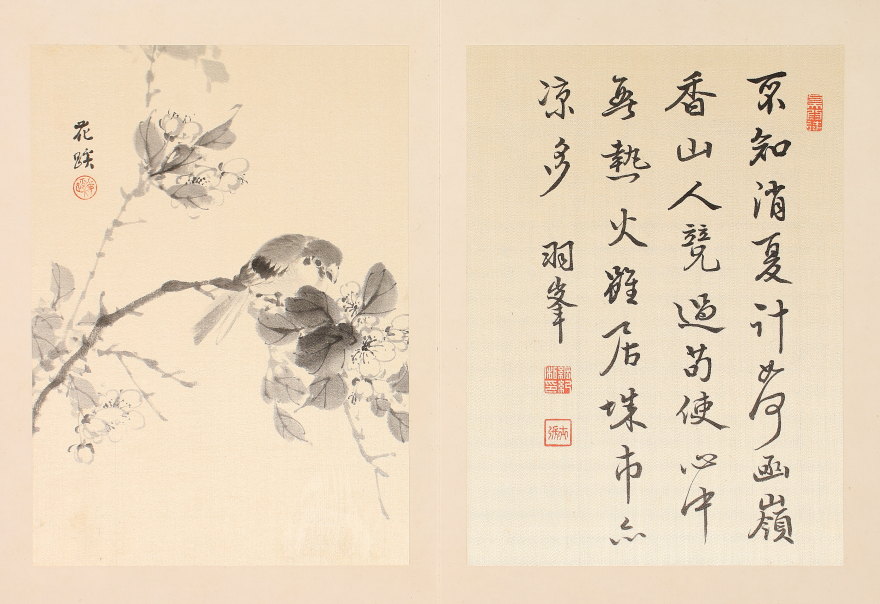 不知消夏計如何函嶺
香山人競過苟使心中
無熱火雖居城市亦
凉多 羽峯
花蹊